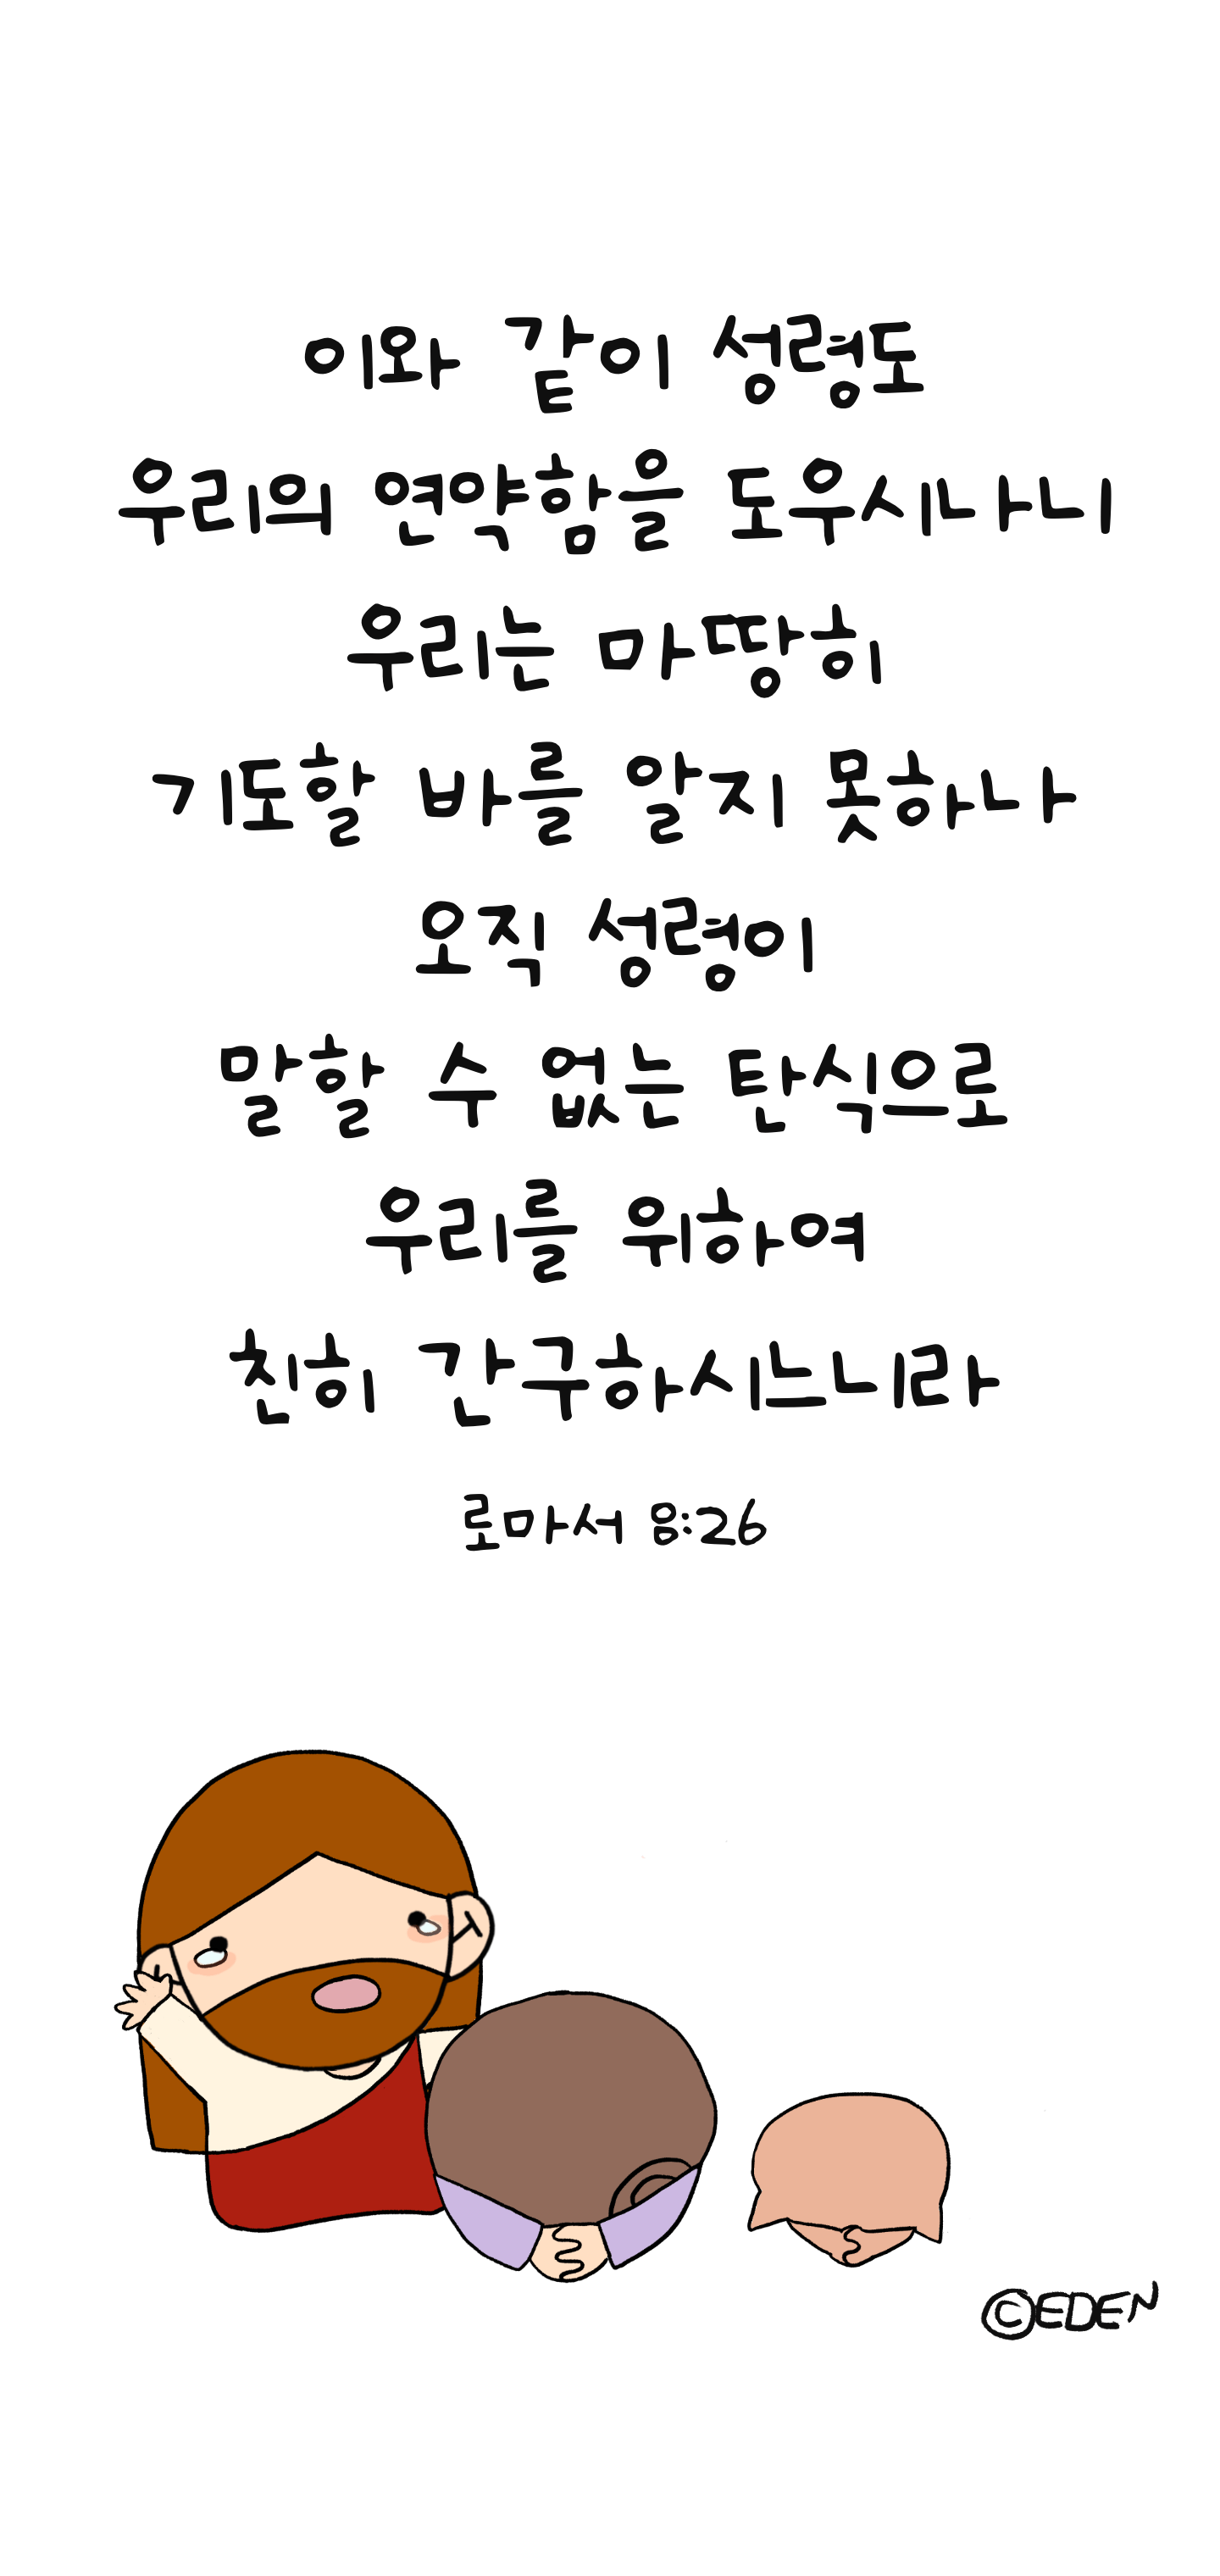 이와 같이 성령도
우리의 연약함을 도우시나니
우리는 마땅히
기도할 바를 알지 못하나
오직 성령이
말할 수 없는 탄식으로
우리를 위하여
친히 간구하시느니라
로마서 8:26
©EDEN